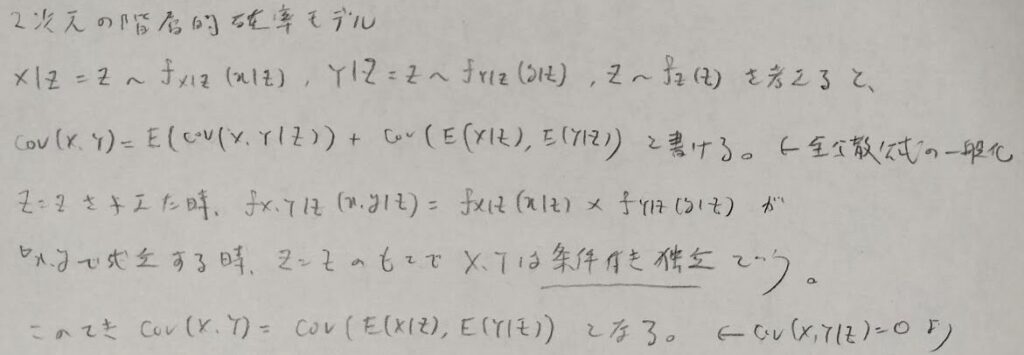 2次元の階層的確率モデル
X|Z=z ~ f_{X|Z}(x|z), Y|Z=z ~ f_{Y|Z}(y|z), Z ~ f_Z(z) を考えると、
Cov(X,Y)=E(Cov(X,Y|Z)) + Cov(E(X|Z), E(Y|Z)) と書ける。 ←全分散公式の一般化
Z=z を与えた時、f_{X,Y|Z}(x,y|z) = f_{X|Z}(x|z) × f_{Y|Z}(y|z) が
∀x,yで成立する時、Z=zのもとで X,Yは条件付き独立という。
このとき Cov(X,Y) = Cov(E(X|Z), E(Y|Z)) となる。 ←Cov(X,Y|Z)=0 より